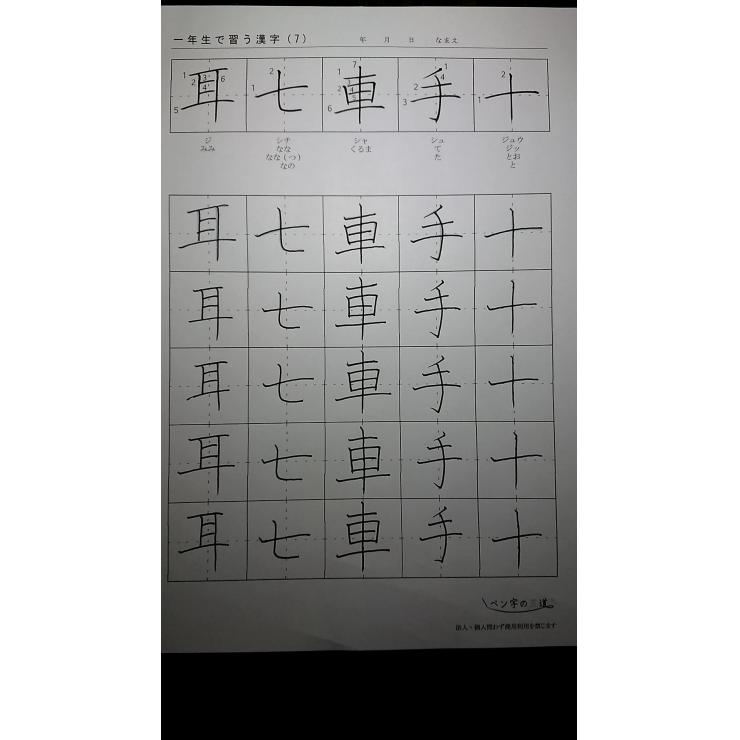 一年生で習う漢字(7) 年 月 日 なまえ
耳 七 車 手 十
ジ シチ シャ シュ ジュウ
みみ なな くるま て ジッ
なな(つ) た とお
なの と
耳 七 車 手 十
耳 七 車 手 十
耳 七 車 手 十
耳 七 車 手 十
耳 七 車 手 十
ペン字の道
法人・個人問わず商用利用を禁じます